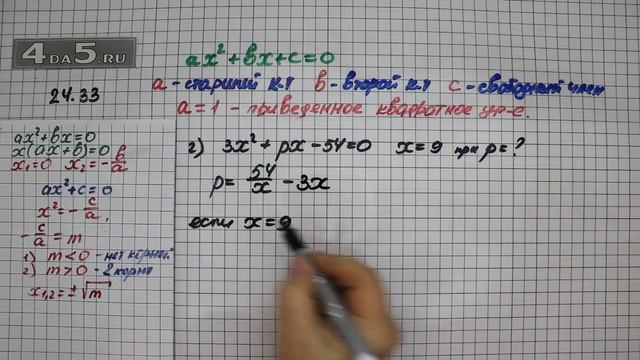 4DA5.RU
24.33
ax²+bx+c=0
a - старший к.т b - второй к.т c - свободный член
a=1 - приведенное квадратное ур-е.
ax²+bx=0
x(ax+b)=0
x₁=0 x₂=-b/a
ax²+c=0
x²=-c/a,
-c/a=m
1) m<0 - нет корней
2) m>0 - 2 корня
x₁,₂=±√m
г) 3x²+px-54=0 x=9 при p=?
p=54/x-3x
если x=9